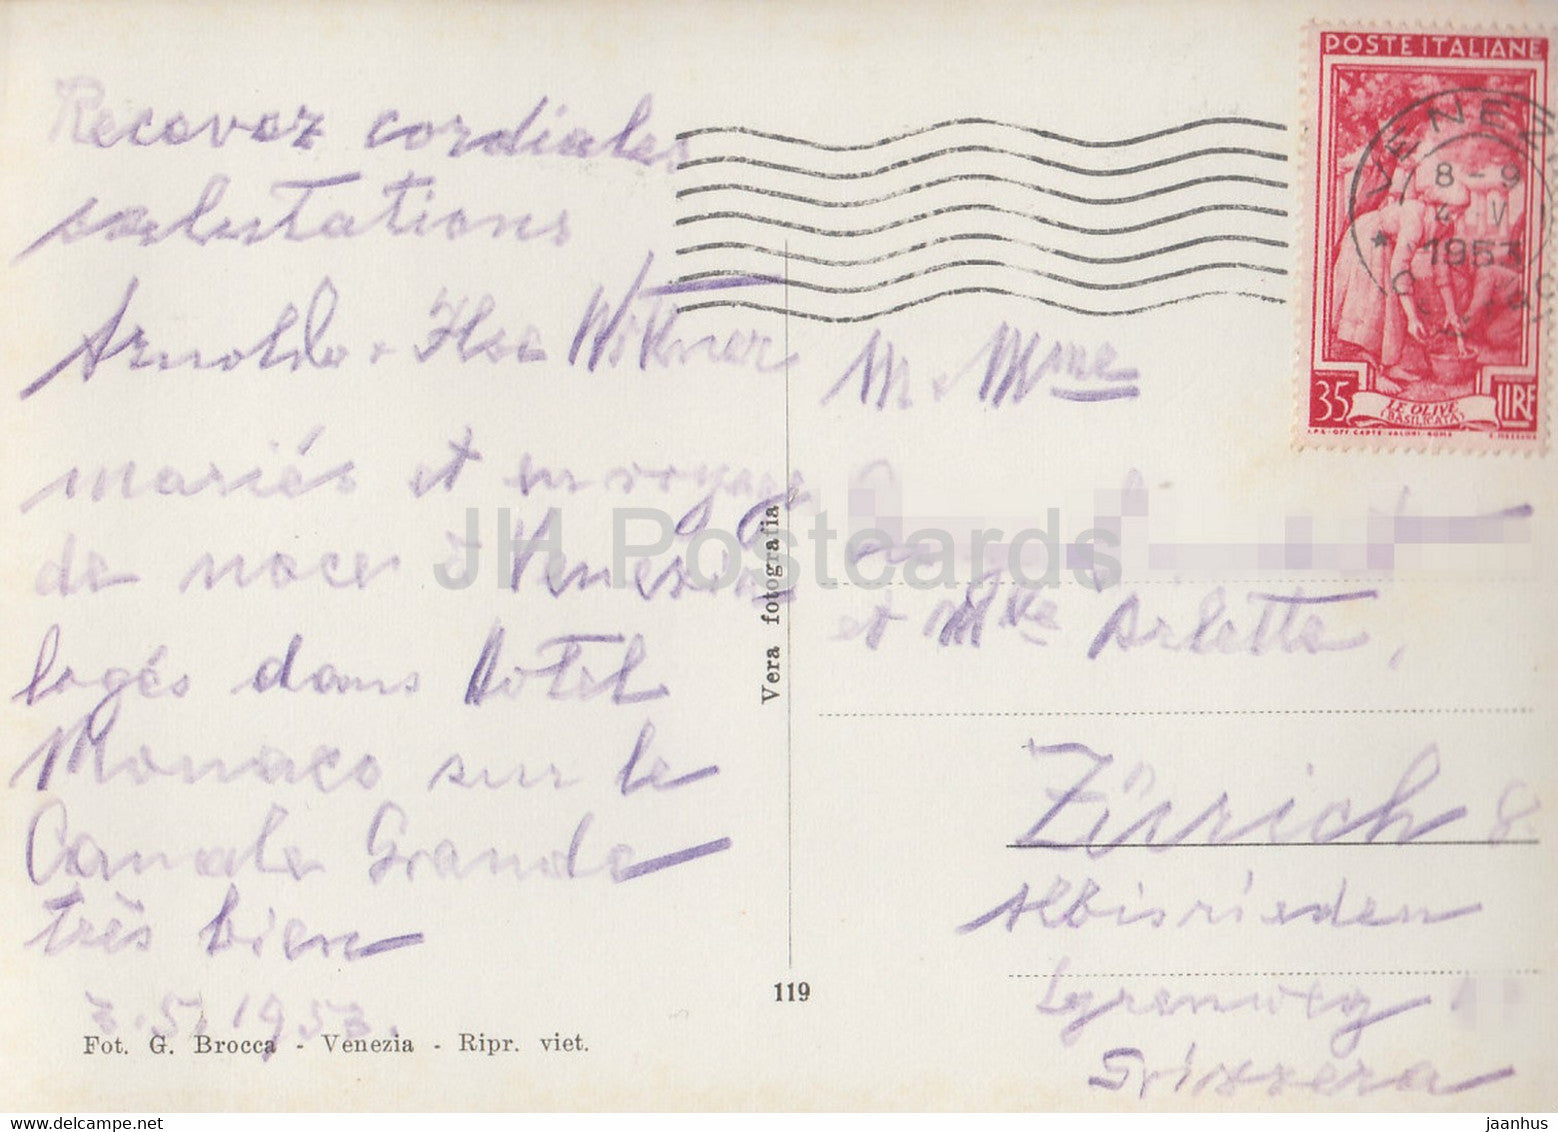 Recevez cordiales
salutations
Arnoldo + Ilse Wittner
mariés et en voyage
de noces à Venezia
logés dans Hotel
Monaco sur le
Canale Grande
très bien
3.5.1953.
Fot. G. Brocca - Venezia - Ripr. viet.
Vera fotografia
119
JH Postcards
POSTE ITALIANE
35 LIRE
LE OLIVE
(BASILICATA)
I.P.S. - OFF. CARTE - VALORI - ROMA
8 - 9
4 V
1953
M + Mme
et Mlle Arlette,
Zürich 8
Albisrieden
Lyrenweg
Svizzera
www.delcampe.net
jaanhus